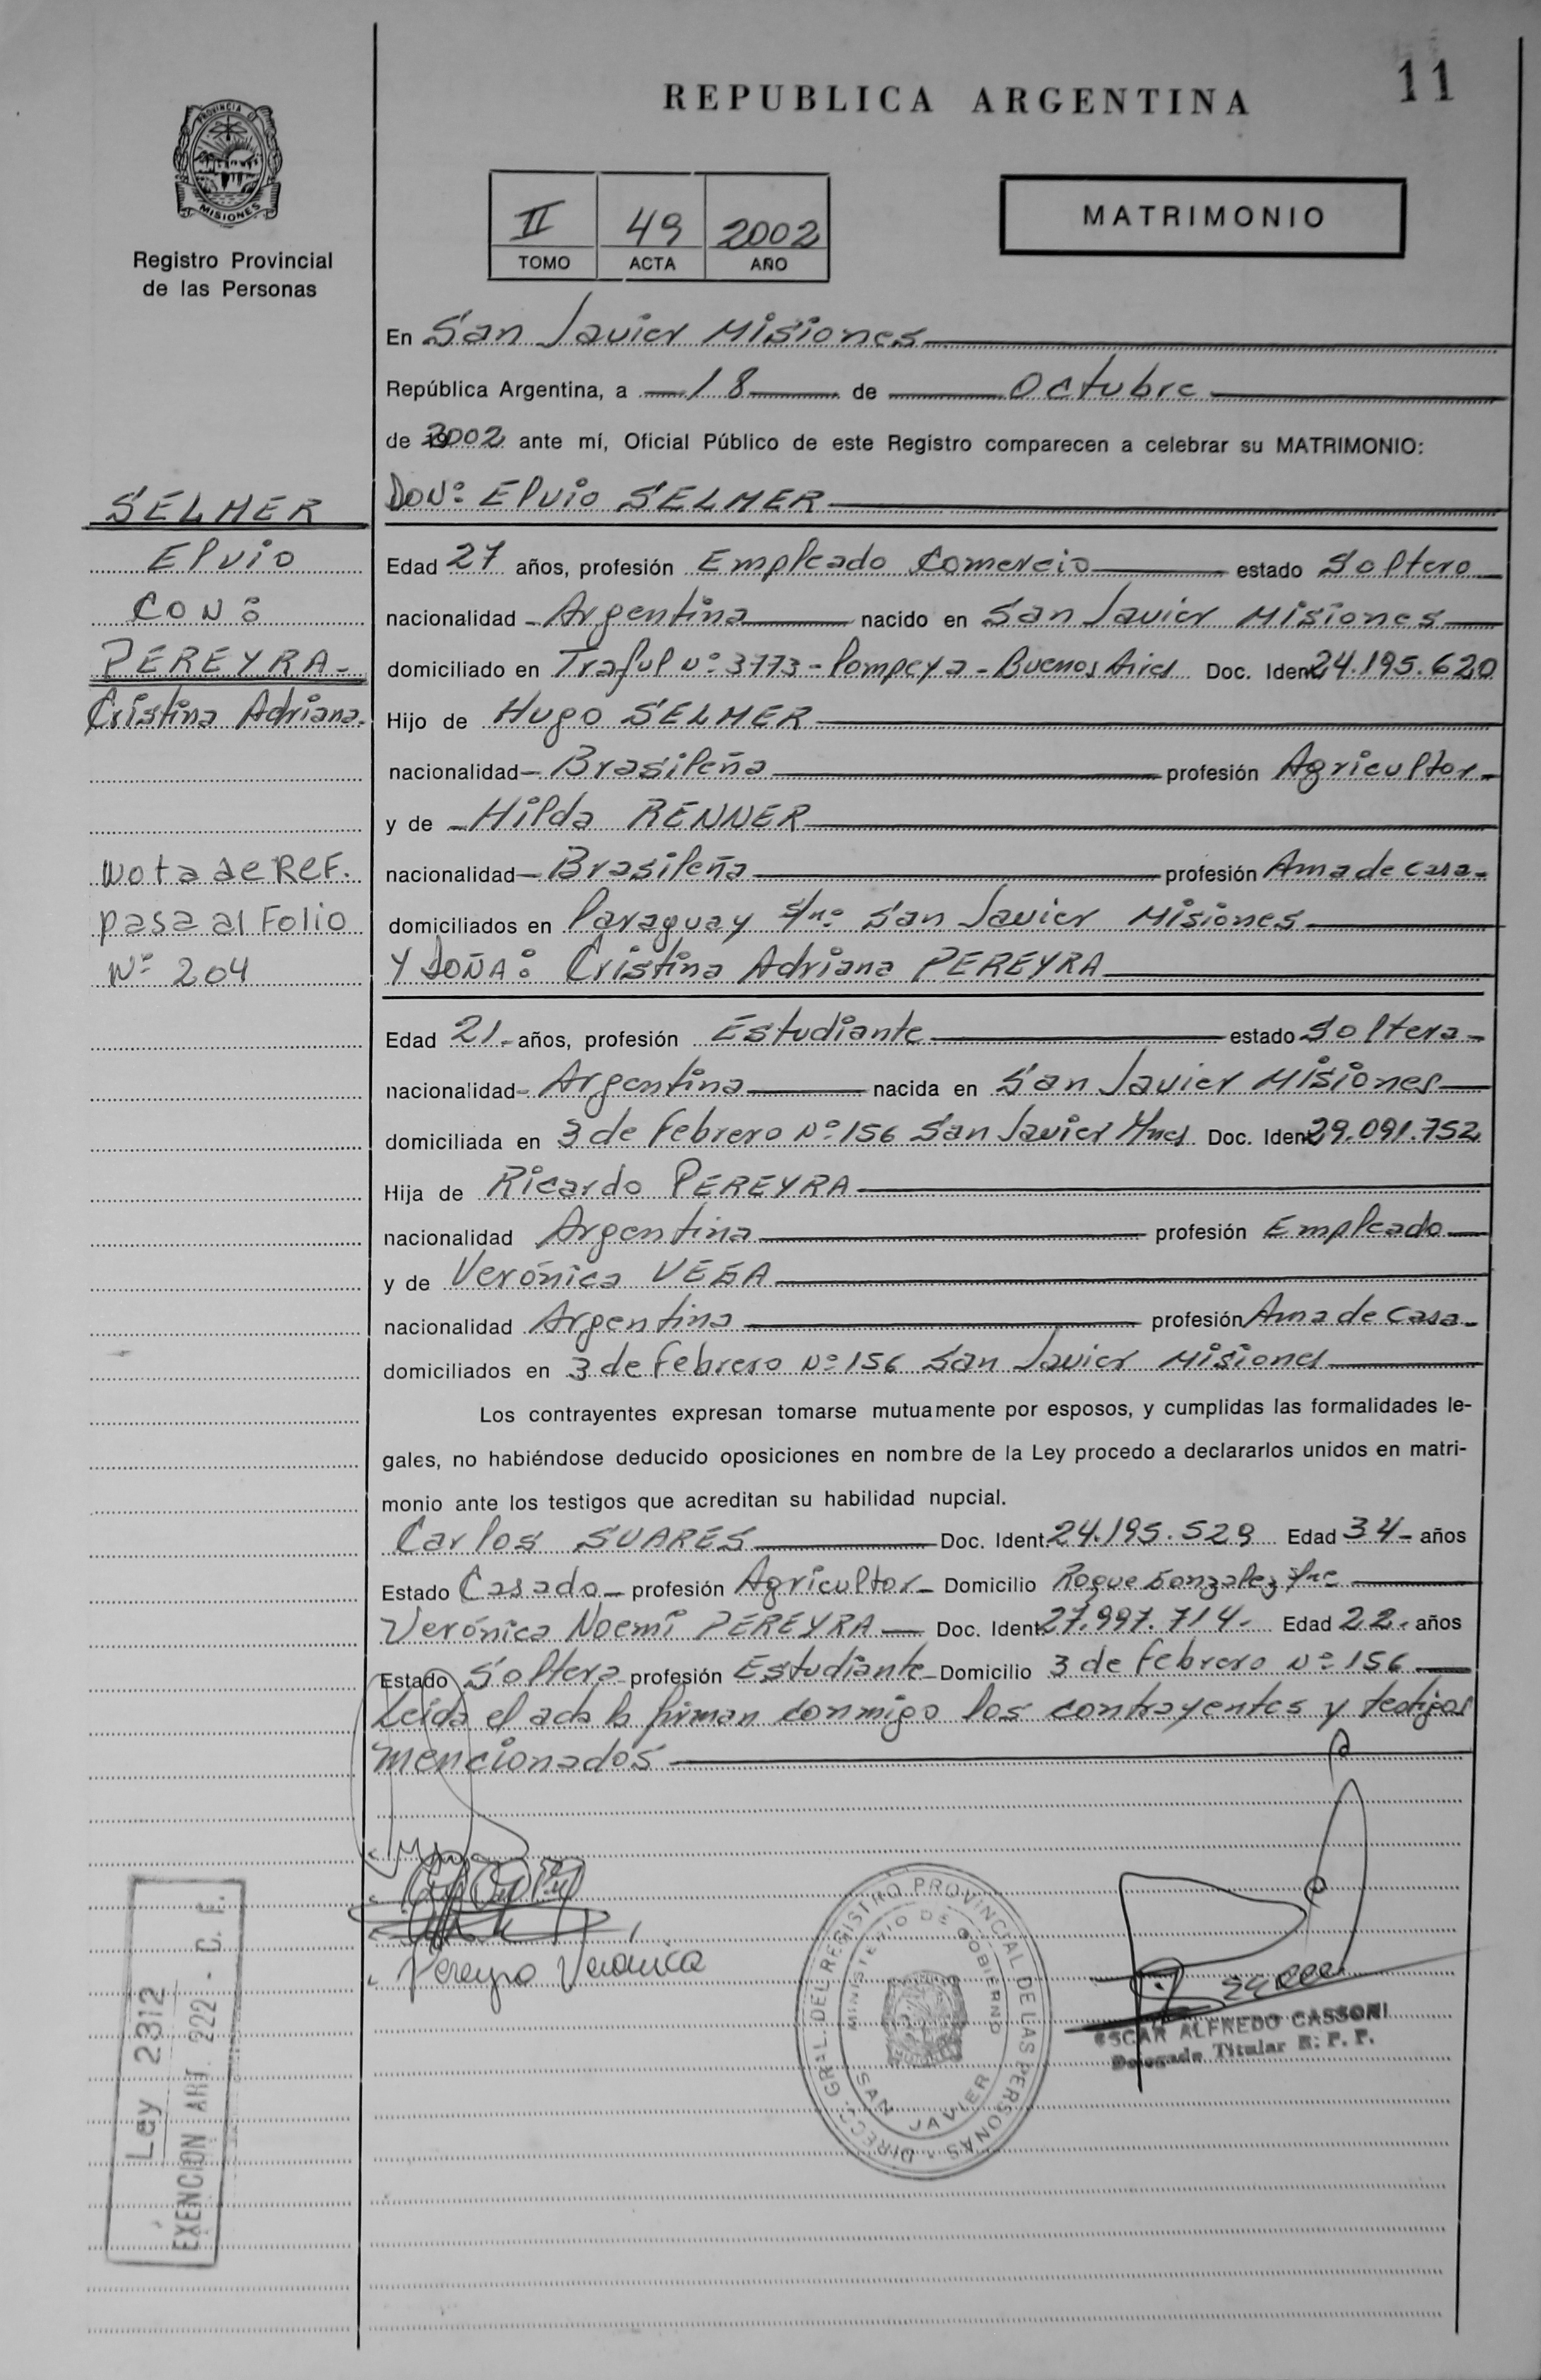 REPUBLICA ARGENTINA
11
PROVINCIA DE
MISIONES
Registro Provincial
de las Personas
II 49 2002
TOMO ACTA AÑO
MATRIMONIO
En San Javier Misiones
República Argentina, a 18 de Octubre
de 2002 ante mí, Oficial Público de este Registro comparecen a celebrar su MATRIMONIO:
DON: Elvio SELMER
Edad 27 años, profesión Empleado Comercio estado Soltero
nacionalidad Argentina nacido en San Javier Misiones
domiciliado en Traful Nº 3773 - Pompeya - Buenos Aires Doc. Ident 24.195.620
Hijo de Hugo SELMER
nacionalidad Brasileña profesión Agricultor
y de Hilda RENNER
nacionalidad Brasileña profesión Ama de casa
domiciliados en Paraguay s/nº San Javier Misiones
Y DOÑA: Cristina Adriana PEREYRA
Edad 21 años, profesión Estudiante estado Soltera
nacionalidad Argentina nacida en San Javier Misiones
domiciliada en 3 de Febrero Nº 156 San Javier Mnes Doc. Ident 29.091.752
Hija de Ricardo PEREYRA
nacionalidad Argentina profesión Empleado
y de Verónica VEGA
nacionalidad Argentina profesión Ama de casa
domiciliados en 3 de Febrero Nº 156 San Javier Misiones
Los contrayentes expresan tomarse mutuamente por esposos, y cumplidas las formalidades le-
gales, no habiéndose deducido oposiciones en nombre de la Ley procedo a declararlos unidos en matri-
monio ante los testigos que acreditan su habilidad nupcial.
Carlos SUARES Doc. Ident. 24.195.529 Edad 34 años
Estado Casado profesión Agricultor Domicilio Roque Gonzalez
Verónica Noemí PEREYRA Doc. Ident. 27.997.714 Edad 22 años
Estado Soltera profesión Estudiante Domicilio 3 de Febrero Nº 156
Leída el acta la firman conmigo los contrayentes y testigos
mencionados
Pereyra Verónica
SELMER
Elvio
CON:
PEREYRA
Cristina Adriana
Nota de REF.
pasa al Folio
Nº 204
Ley 2312
EXENCION ART. 222 - C. F.
DIRECC. GRAL. DEL REGISTRO PROVINCIAL DE LAS PERSONAS
MINISTERIO DE GOBIERNO
SAN JAVIER
OSCAR ALFREDO CASSONI
Delegado Titular R. P. P.